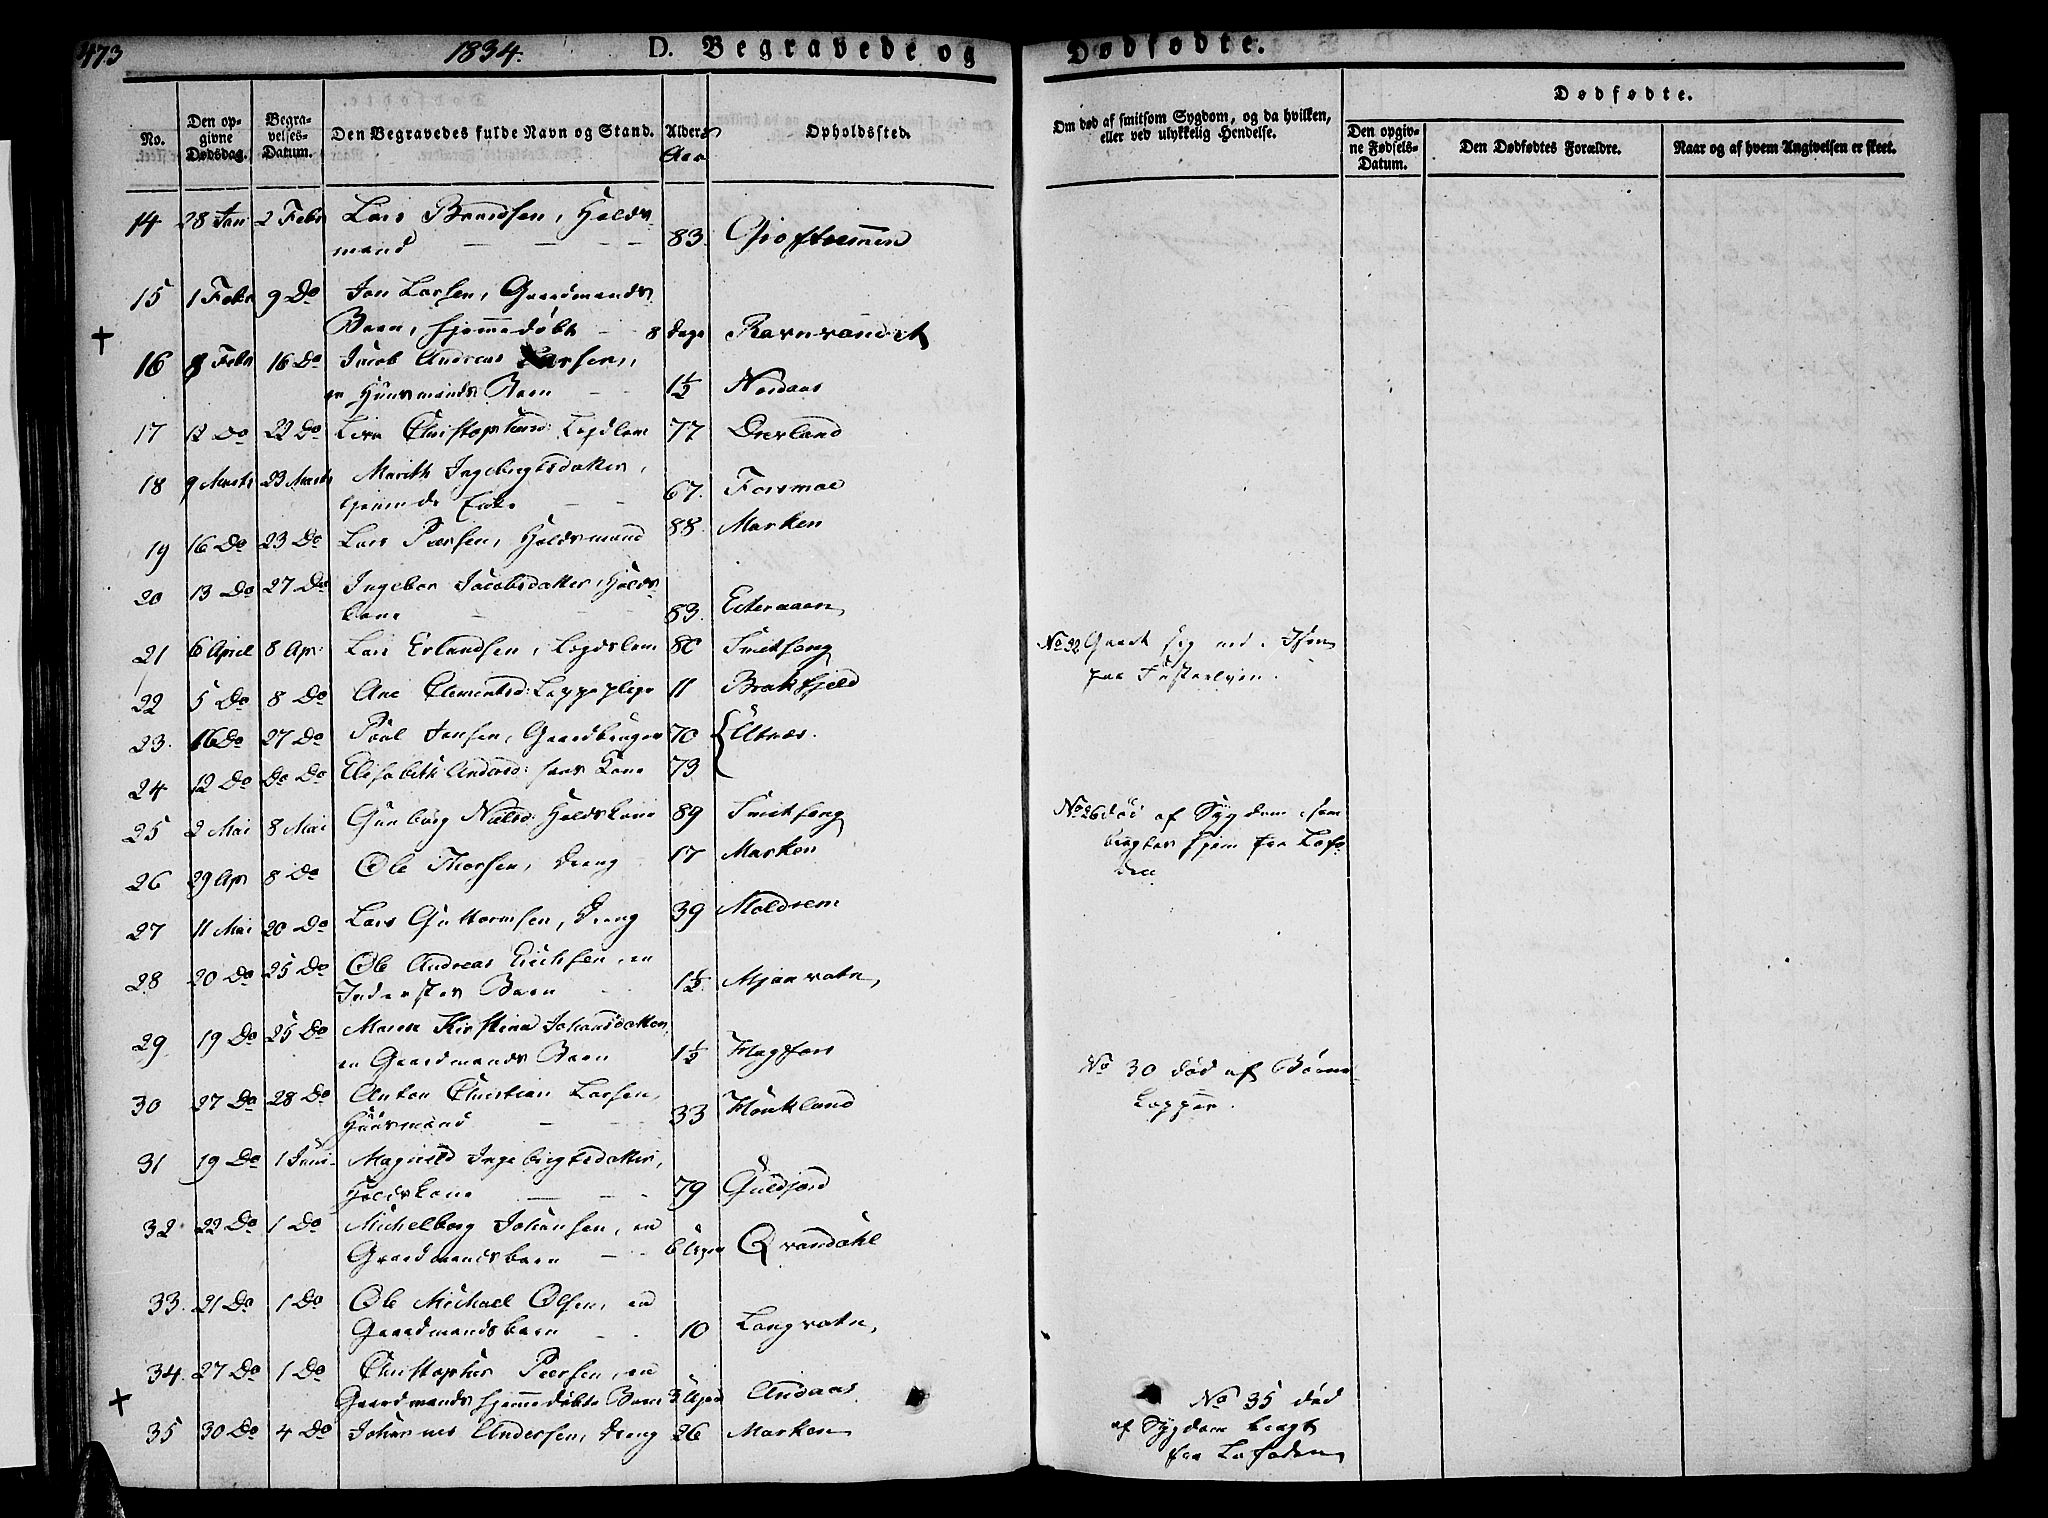 473 1834. D. Begravede og Dødfødte.
No. Den opgivne Dødsdag. Begravelses-Datum. Den Begravedes fulde Navn og Stand. Alder Aar Opholdssted.
Om død af smitsom Sygdom, og da hvilken, eller ved ulykkelig Hendelse.
Dødfødte.
Den opgivne Fødsels-Datum. Den Dødfødtes Forældre. Naar og af hvem Angivelsen er skeet.
14 28 Jan 2 Febr Lars Baardsen, Holds
mand 83.
15 1 Febr 9 Do Jon Larsen, Gaardmands
Barn, hjemmedøbt 8 dage Ravnvandet
16 8 Febr 16 Do Jacob Andreas Larsen,
en Huusmands Barn 1½ Nordaas
17 12 Do 22 Do Christophersd: Lægdslem 77 Drevland
18 9 Marts 23 Marts Marith Ingebrigtsdatter,
Enke 67. Forsmoe
19 16 Do 23 Do Lars Pærsen, Holdsmand 88. Marken
20 13 Do 27 Do Ingebor Jacobsdatter, Holds
kone 83.
21 6 April 8 Apr: Lars Erlandsen, Lægdslem 80 Smitseng
22 5 Do 8 Do Ane Clementsd: Lappepige 11 Brakfjeld
23. 16 Do 27 Do Paul Jonsen, Gaardbruger 70 Utnæs.
24 12 Do Do Do Elisabeth Andersd: hans Kone 73
25 2 Mai 8 Mai Gunborg Nielsd: Holdskone 89 Smitseng
26 29 Apr 8 Do Ole Thorsen, dreng 17 Marken
27 11 Mai 20 Do Lars Guttormsen, Dreng 39 Moldrem
28 20 Do 25 Do Ole Andreas Erichsen, en
Indersters Barn 1½ Mjaavatn,
29 19 Do 25 Do Maren Kirstina Johansdatter,
en Gaardmands Barn 1½ Hagfors
30 27 Do 28 Do Anton Christian Larsen,
Huusmand 33 Haukland
31 19 Do 1 Juni Magnild Ingebrigtsdatter,
Holdskone 79 Guldjord
32 22 Do 1 Do Michelborg Johansen, en
Gaardmandsbarn 6 Uger Qvandahl
33. 21 Do 1 Do Ole Michael Olsen, en
Gaardmandsbarn 10 Langvatn,
34. 27 Do 1 Do Christopher Peersen, en
Gaardmands hjemmedøbte Barn 3 Uger Andaas
35 30 Do 4 Do Johannes Andersen, dreng 26 Marken
No 22 sig ned i Isen
paa Fusteelven.
No 26 død af Sygdom, som
bragtes hjem fra Lofo-
den
No 30 død af Børne
kopper.
No 35 død
af Sygdom bragt
fra Lofoden